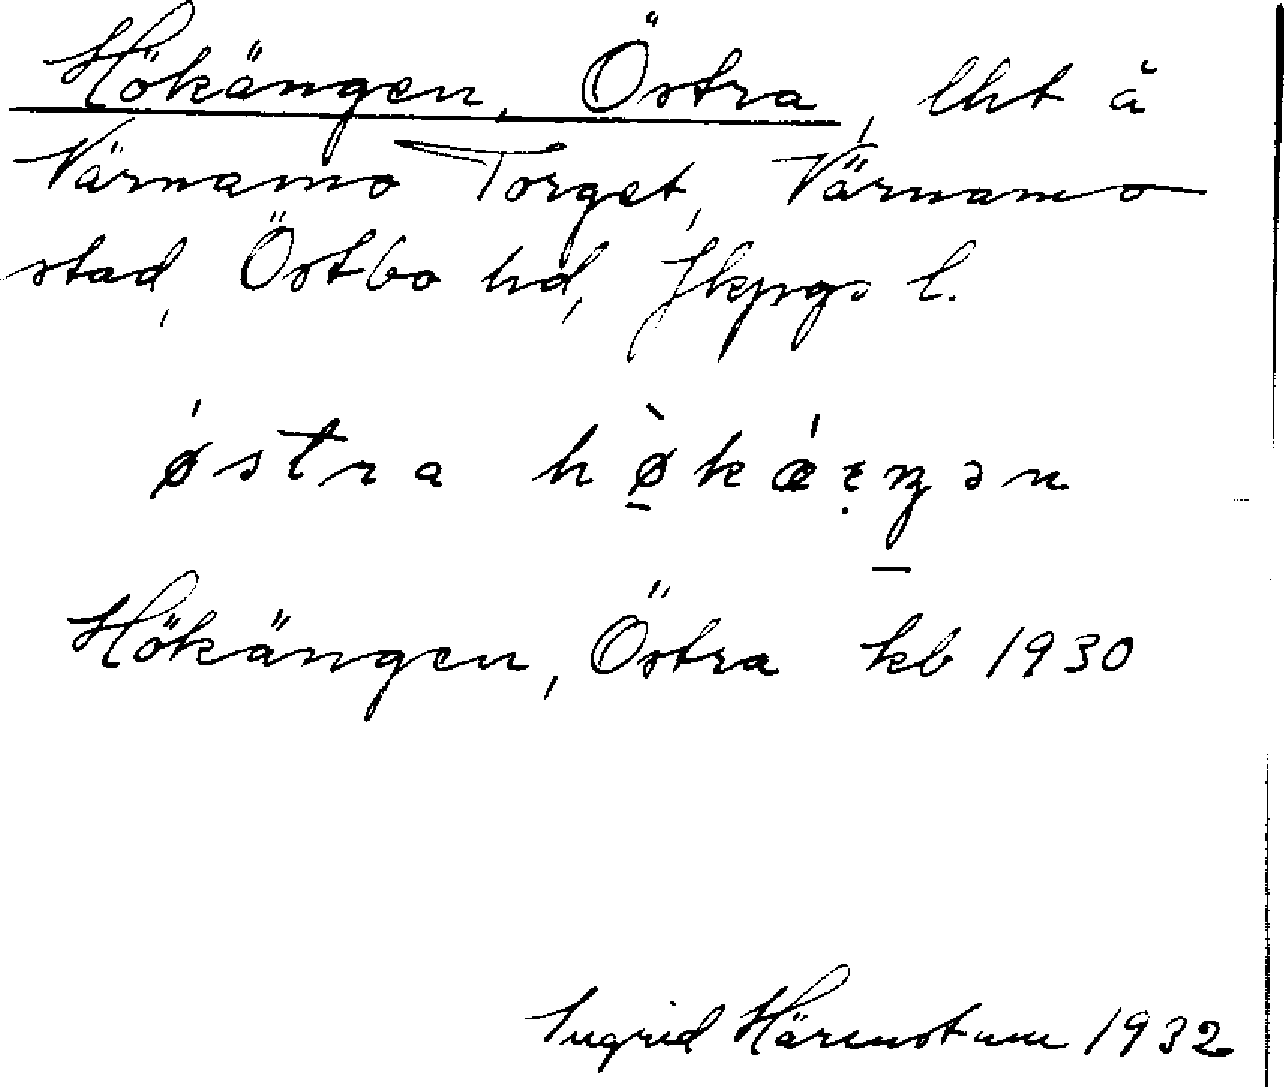 Hökängen, Östra, lht å
Värnamo Torget, Värnamo
stad, Östbo hd, Jkpgs l.
Hökängen, Östra kb 1930
Ingrid 1932